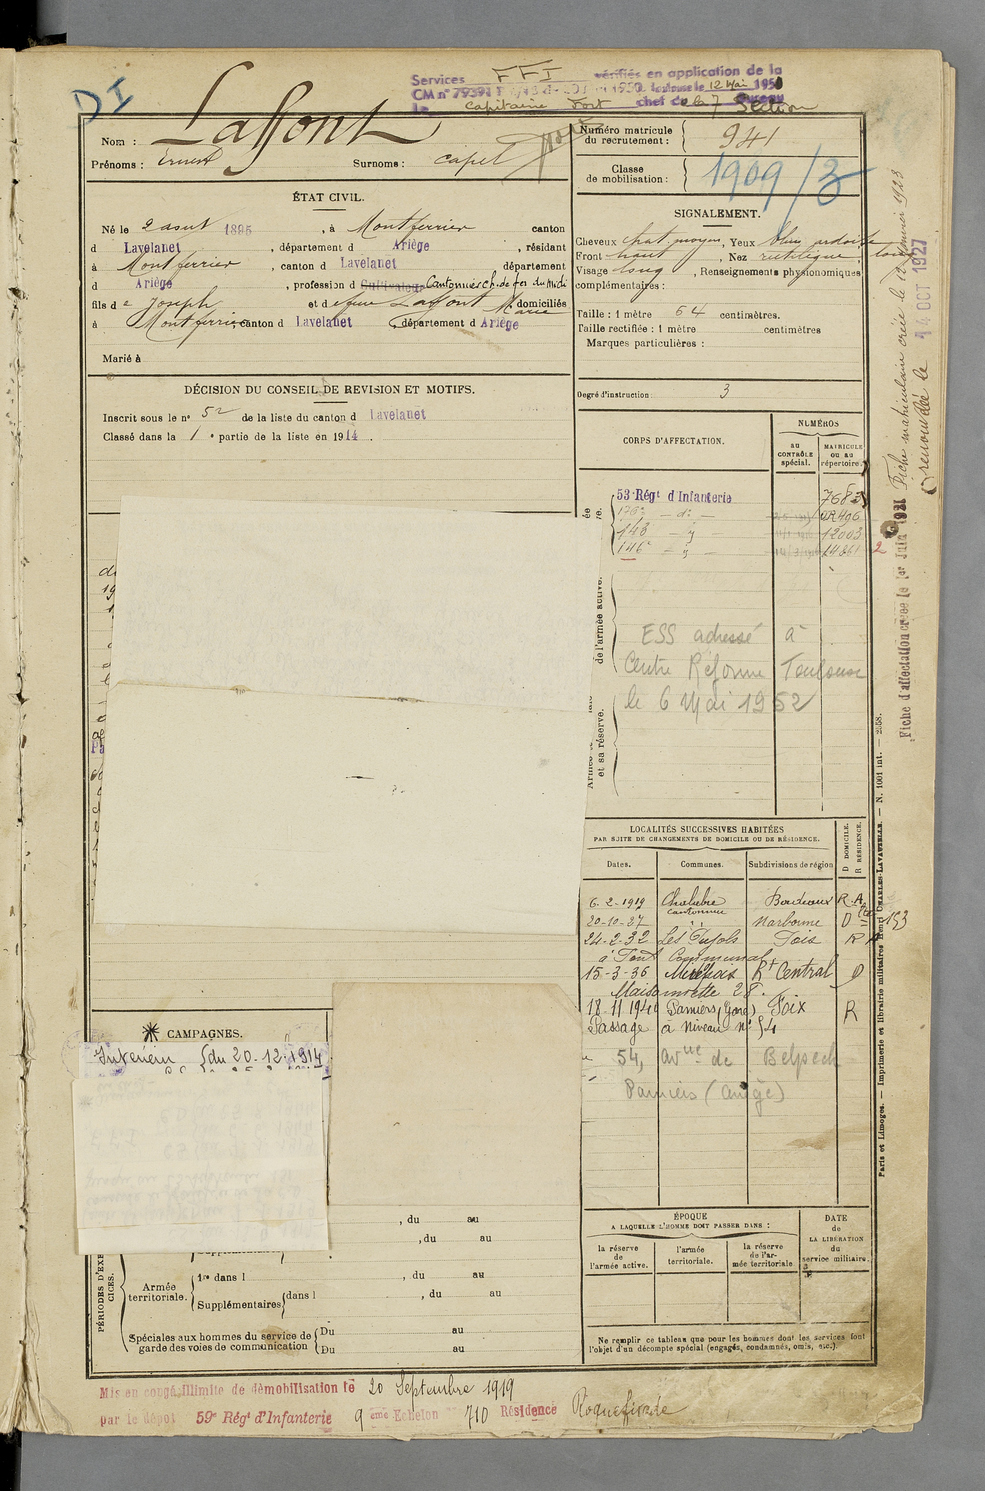 DI
Services FFI vérifiés en application de la
CM n° 79391 1950. Toulouse le 12 Mai 1950
Le Capitaine Fort chef de la 7 Section
Nom : Laffont
Prénoms : Ernest Surnoms : Capel
Numéro matricule
du recrutement : 941
Classe
de mobilisation : 1909/3
ÉTAT CIVIL.
Né le 2 août 1895, à Montferrier canton
d Lavelanet, département d Ariège, résidant
à Montferrier, canton d Lavelanet département
d Ariège, profession d Cultivateur Cantonnier ch. de fer du Midi
fils de Joseph et d Laffont Marie domiciliés
à Montferrier canton d Lavelanet, département d Ariège
Marié à
SIGNALEMENT.
Cheveux chat. moyen, Yeux bleu ardoisé
Front haut, Nez rectiligne
Visage long, Renseignements physionomiques
complémentaires :
Taille : 1 mètre 54 centimètres.
Taille rectifiée : 1 mètre centimètres
Marques particulières :
Degré d'instruction : 3
DÉCISION DU CONSEIL DE REVISION ET MOTIFS.
Inscrit sous le n° 52 de la liste du canton d Lavelanet
Classé dans la 1e partie de la liste en 1914.
CORPS D'AFFECTATION.
NUMÉROS
au
CONTRÔLE
spécial.
MATRICULE
ou au
répertoire.
53 Régt d'Infanterie 7683
143 12003
146e 14861
de l'armée active.
et sa réserve.
ESS adressé à
Centre Réforme Toulouse
le 6 Mai 1952
LOCALITÉS SUCCESSIVES HABITÉES
PAR SUITE DE CHANGEMENTS DE DOMICILE OU DE RÉSIDENCE.
Dates. Communes. Subdivisions de région
D DOMICILE.
R RÉSIDENCE.
6-2-1919 Chalabre Bordeaux R.A.
cantonnier
20-10-27 Narbonne D 153
24-2-32 Les Pujols Foix R
à Pont Communal
15-3-36 Mirepoix Rt Central D
Maisonnette 28.
18-11-194 Pamiers (Gare) Foix R
Passage à Niveau N° 54
54, avnue de Belpech
Pamiers (Ariège)
CAMPAGNES.
Intérieur du 20-12-1914
ÉPOQUE
A LAQUELLE L'HOMME DOIT PASSER DANS :
la réserve
de
l'armée active.
l'armée
territoriale.
la réserve
de l'ar-
mée territoriale
DATE
de
LA LIBÉRATION
du
service militaire.
, du au
, du au
PÉRIODES D'EXER
CICES.
Armée
territoriale.
1re dans l , du au
Supplémentaires dans l , du au
Spéciales aux hommes du service de
garde des voies de communication
Du au
Du au
Ne remplir ce tableau que pour les hommes dont les services font
l'objet d'un décompte spécial (engagés, condamnés, omis, etc.).
Mis en congé illimité de démobilisation le 20 Septembre 1919
par le dépôt 59e Régt d'Infanterie 9 ème Echelon N° 710 Résidence Roquefixade
Paris et Limoges. — Imprimerie et librairie militaires Henri CHARLES-LAVAUZELLE. — N. 1001 int. — 258.
Fiche d'affectation créée le 1er Juin 1931
Fiche matriculaire créée le 12 Janvier 1923
renouvelée le 14 OCT 1927